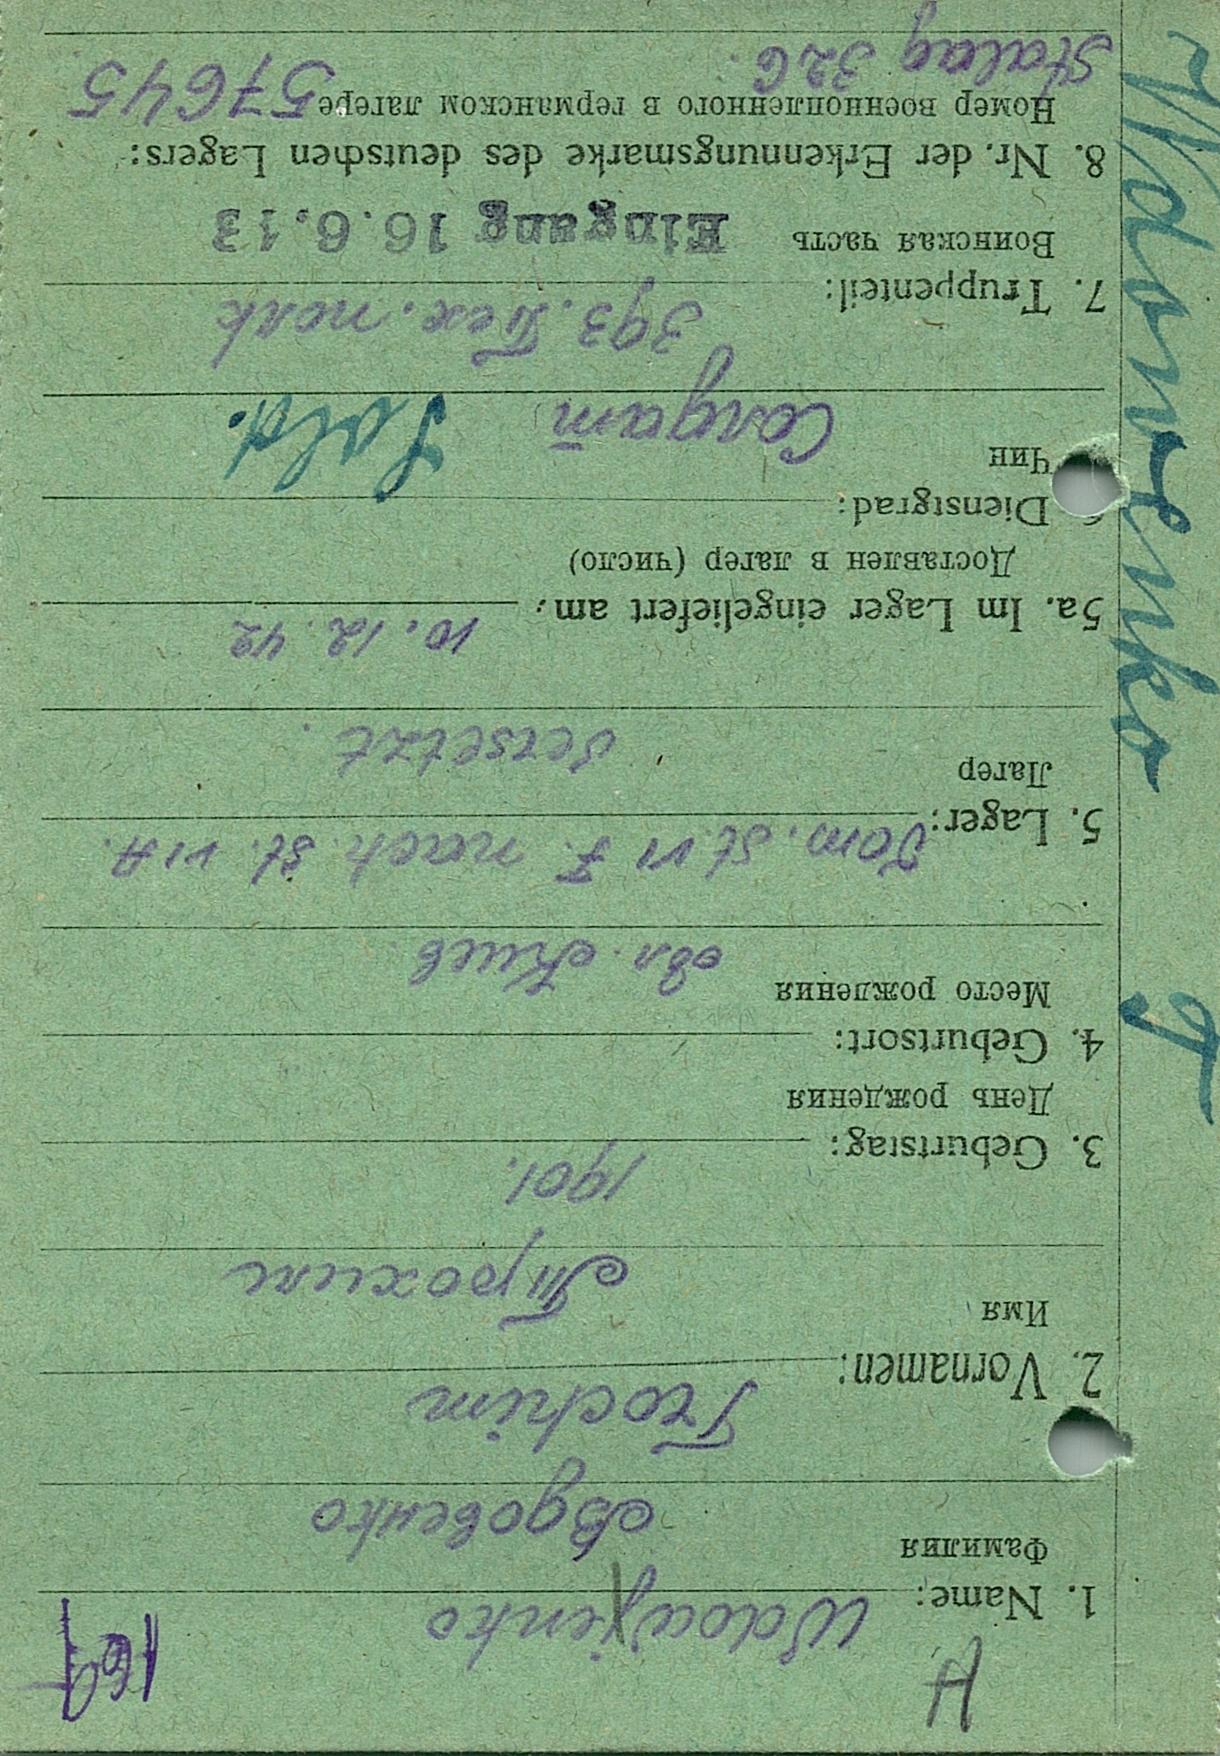 H
169
1. Name: Wdowjenko
Фамилия Вдовенко
Trochim
2. Vornamen:
Имя Трохим
1901.
3. Geburtstag:
День рождения
4. Geburtsort:
Место рождения обл. Киев
5. Lager: Vom. St. VI F. nach St. VI A.
Лагер
versetzt.
10. 12. 42
5a. Im Lager eingeliefert am:
Доставлен в лагер (число)
6. Dienstgrad:
Чин Солдат Sold.
393. Тех. полк
7. Truppenteil:
Воинская часть Eingang 16.6.13
8. Nr. der Erkennungsmarke des deutschen Lagers:
Номер военнопленного в германском лагере 57645
Stalag 326.
Wdowenko T